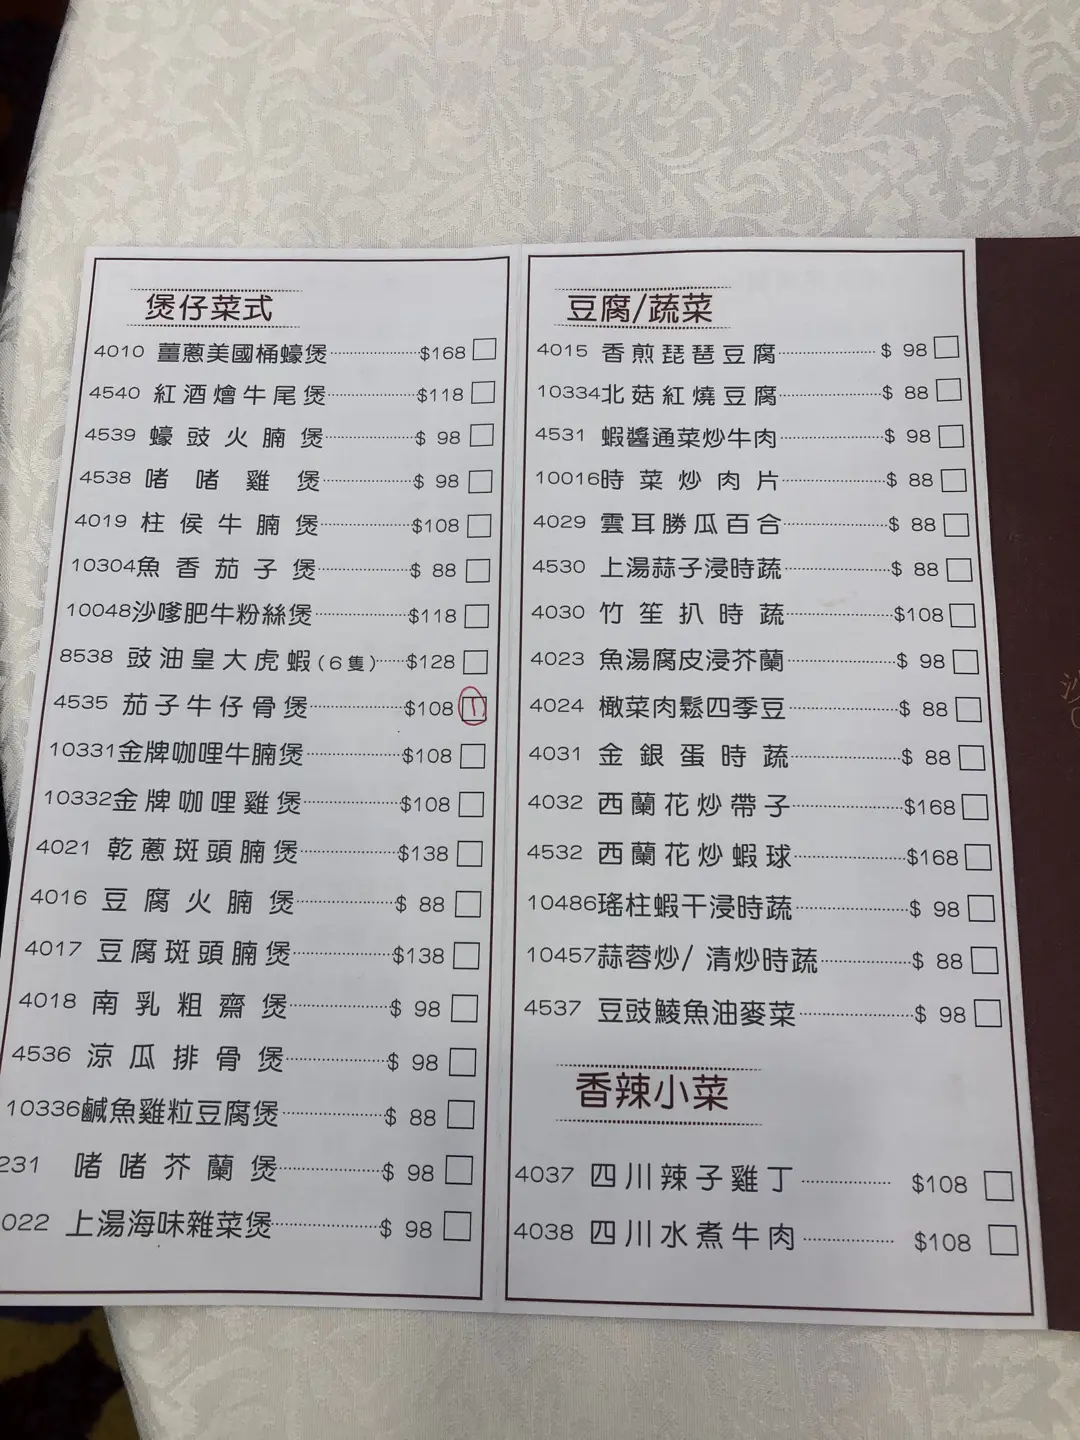 煲仔菜式
4010 薑蔥美國桶蠔煲 $168
4540 紅酒燴牛尾煲 $118
4539 蠔豉火腩煲 $ 98
4538 啫啫雞煲 $ 98
4019 柱侯牛腩煲 $108
10304 魚香茄子煲 $ 88
10048 沙嗲肥牛粉絲煲 $118
8538 豉油皇大虎蝦(6隻) $128
4535 茄子牛仔骨煲 $108 1
10331 金牌咖哩牛腩煲 $108
10332 金牌咖哩雞煲 $108
4021 乾蔥斑頭腩煲 $138
4016 豆腐火腩煲 $ 88
4017 豆腐斑頭腩煲 $138
4018 南乳粗齋煲 $ 98
4536 涼瓜排骨煲 $ 98
10336 鹹魚雞粒豆腐煲 $ 88
231 啫啫芥蘭煲 $ 98
022 上湯海味雜菜煲 $ 98
豆腐/蔬菜
4015 香煎琵琶豆腐 $ 98
10334 北菇紅燒豆腐 $ 88
4531 蝦醬通菜炒牛肉 $ 98
10016 時菜炒肉片 $ 88
4029 雲耳勝瓜百合 $ 88
4530 上湯蒜子浸時蔬 $ 88
4030 竹笙扒時蔬 $108
4023 魚湯腐皮浸芥蘭 $ 98
4024 橄菜肉鬆四季豆 $ 88
4031 金銀蛋時蔬 $ 88
4032 西蘭花炒帶子 $168
4532 西蘭花炒蝦球 $168
10486 瑤柱蝦干浸時蔬 $ 98
10457 蒜蓉炒/ 清炒時蔬 $ 88
4537 豆豉鯪魚油麥菜 $ 98
香辣小菜
4037 四川辣子雞丁 $108
4038 四川水煮牛肉 $108